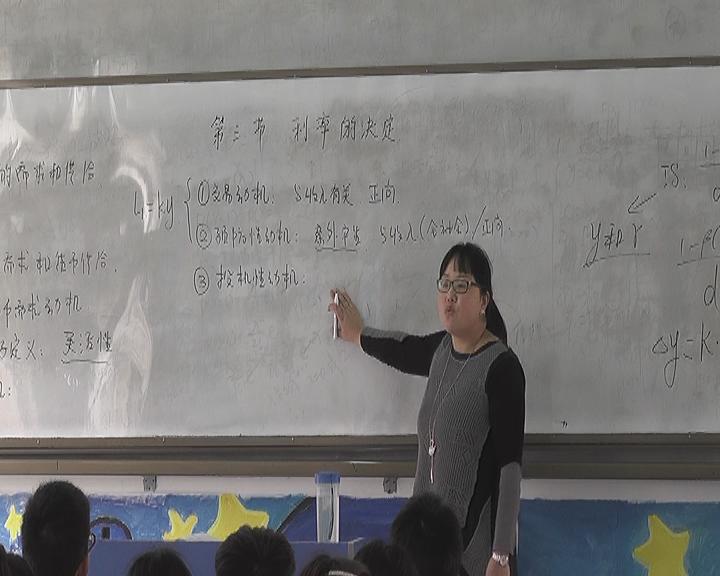 第三节 利率的决定
的需求和供给
L₁=ky
①交易动机: 与收入有关 正向.
②预防性动机: 意外事件 与收入(全社会)/正向.
③投机性动机:
需求和货币供给.
币需求动机
定义: 灵活性
IS:
y和r
1-β(
d
Δy=k·